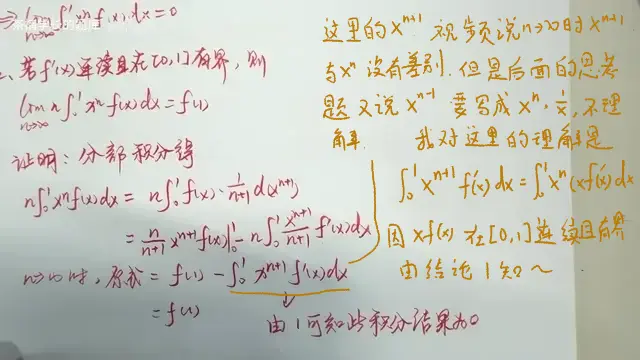 ⇒ lim n→∞ ∫₀¹ xⁿ f(x) dx = 0
、若f'(x)连续且在[0,1]有界，则
lim n→∞ n∫₀¹ xⁿ f(x)dx = f(1)
证明：分部积分得
n∫₀¹ xⁿ f(x)dx = n∫₀¹ f(x)·1/(n+1) d(xⁿ⁺¹)
= n/(n+1) xⁿ⁺¹ f(x)|₀¹ - n∫₀¹ xⁿ⁺¹/(n+1) f'(x)dx
n→∞时，原式 = f(1) - ∫₀¹ xⁿ⁺¹ f'(x)dx
= f(1)
由1可知此积分结果为0
这里的xⁿ⁺¹ 视频说n→∞时xⁿ⁺¹
与xⁿ没有差别，但是后面的思考
题又说xⁿ⁻¹要写成xⁿ·1/x，不理
解. 我对这里的理解是
∫₀¹ xⁿ⁺¹ f'(x)dx = ∫₀¹ xⁿ (xf'(x))dx
因xf'(x)在[0,1]连续且有界
由结论1知~